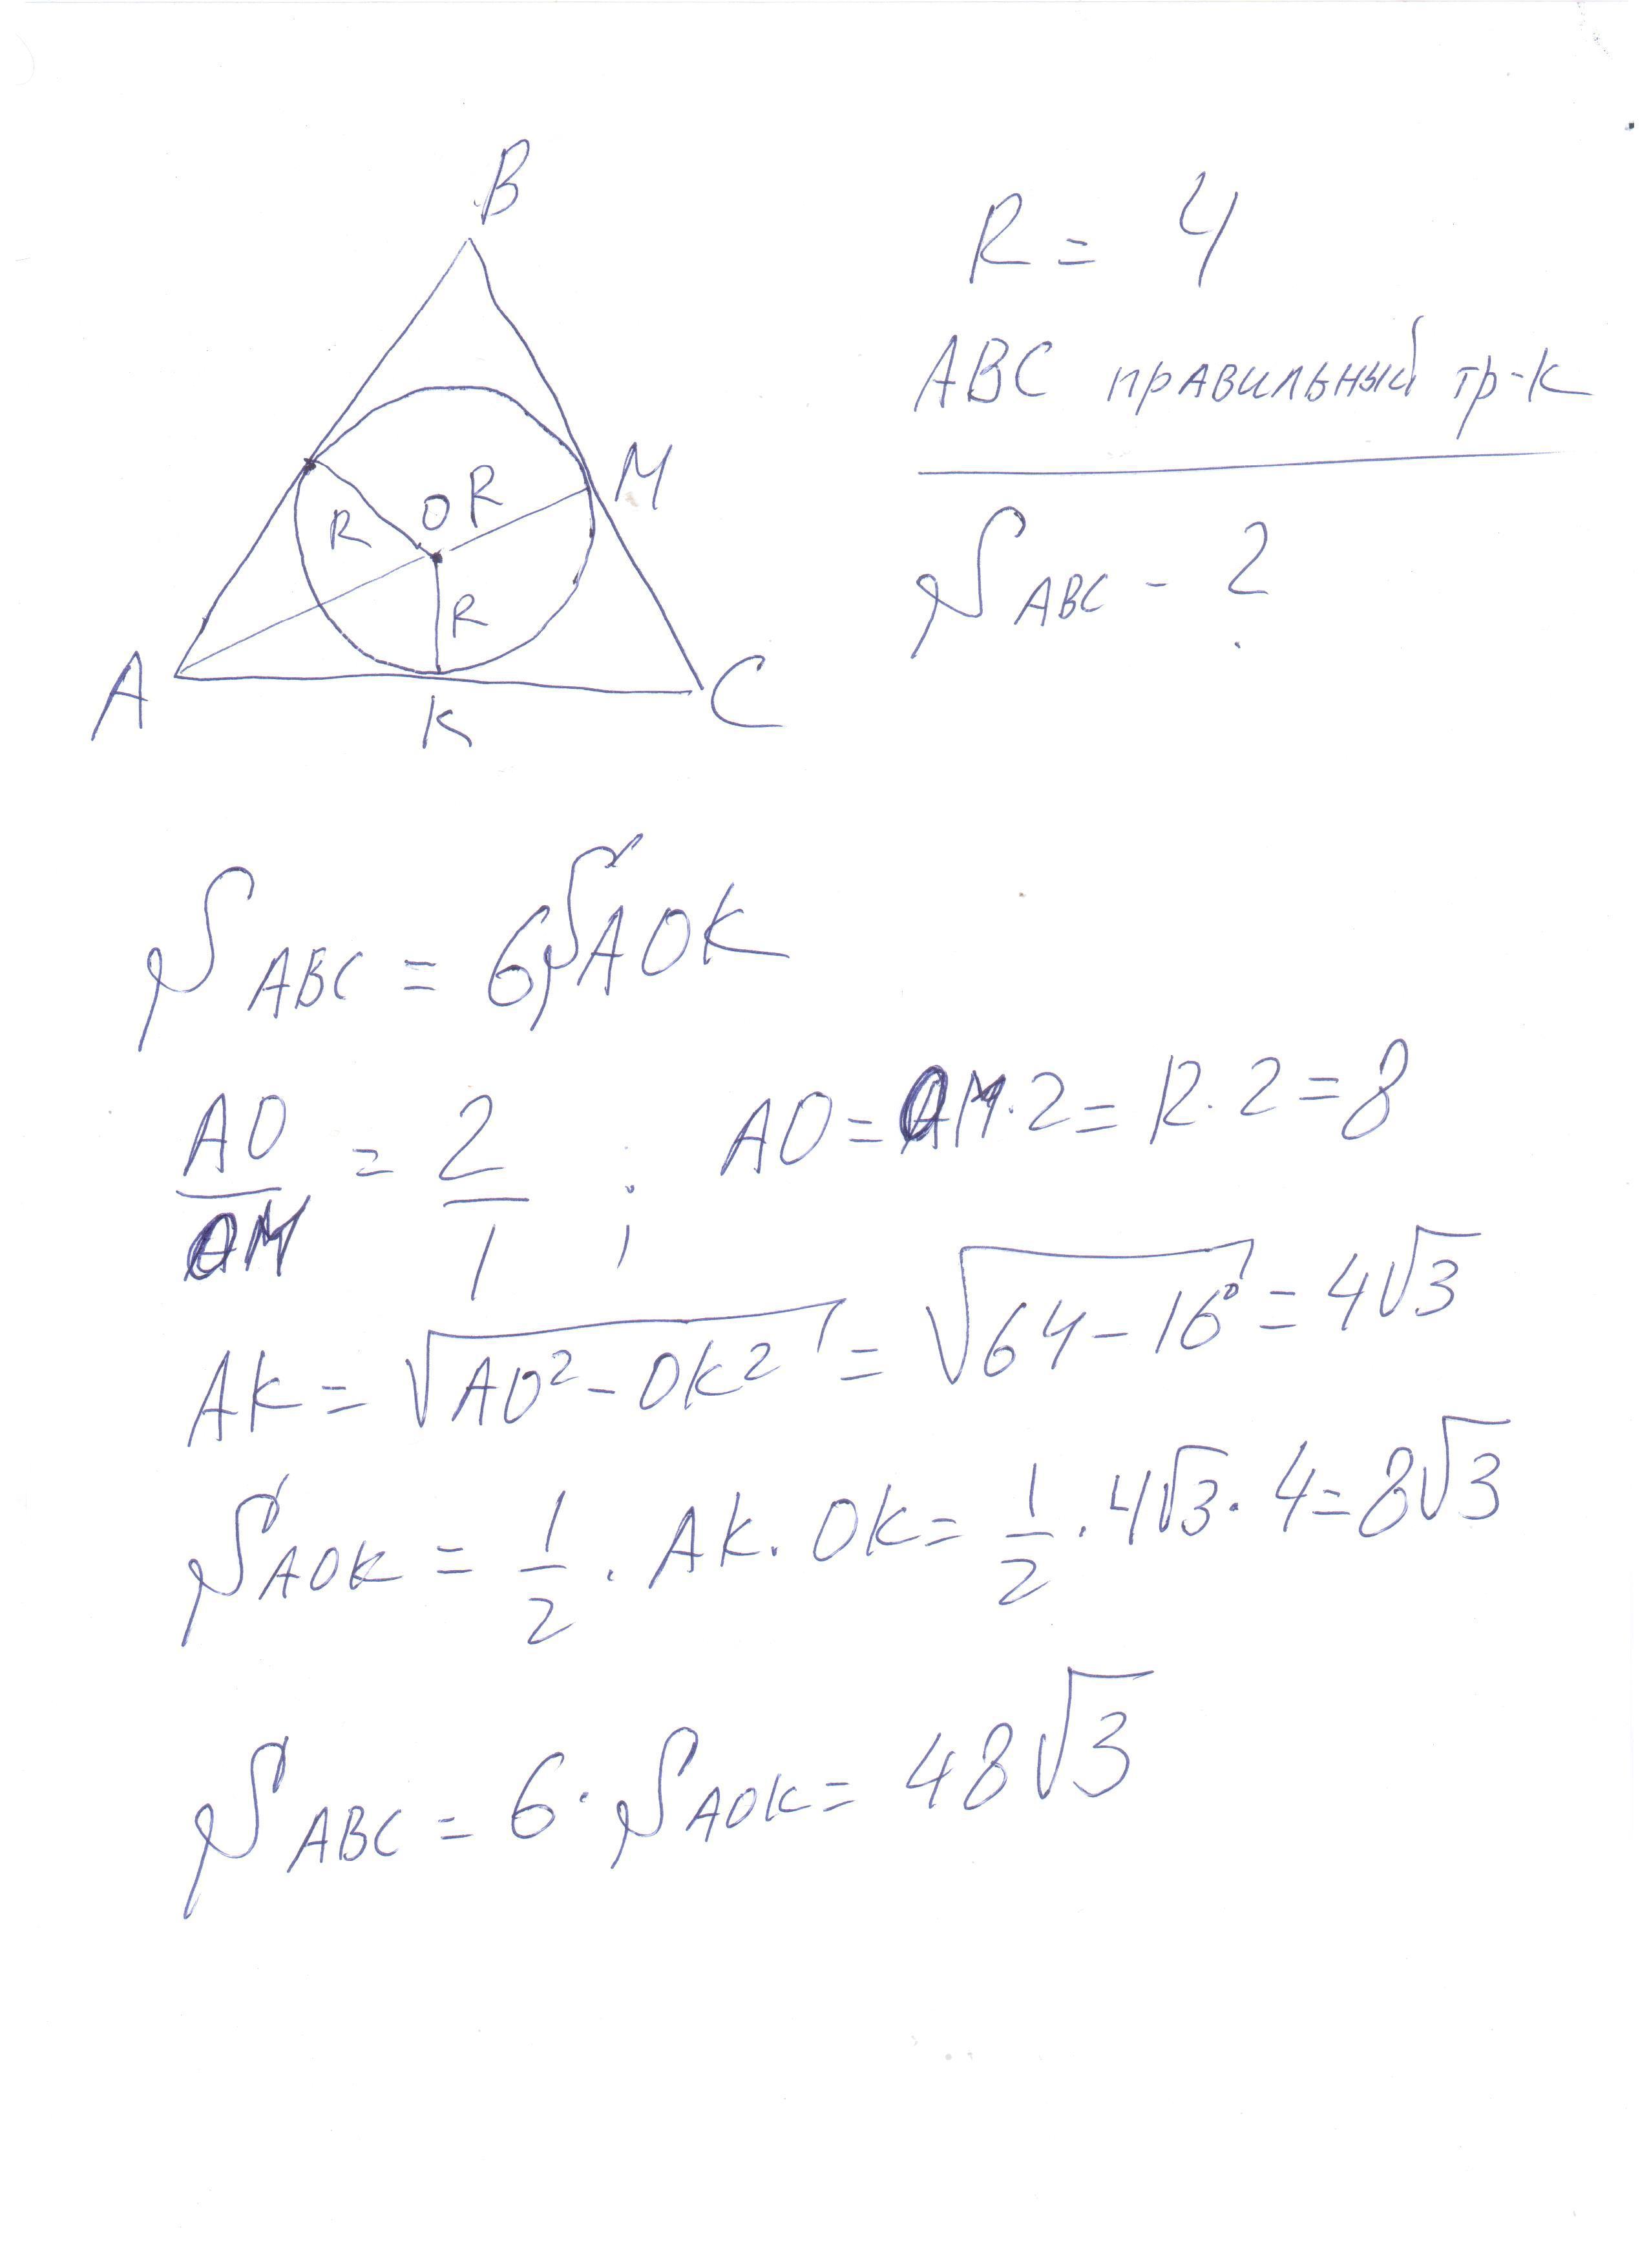 B
R = 4
ABC правильный тр-к
M
O R
R
R
S ABC - ?
A
C
K
S ABC = 6 S AOK
AO/OM = 2/1 ; AO = OM · 2 = R · 2 = 8
AK = √(AO² - OK²) = √(64 - 16) = 4√3
S AOK = 1/2 · AK · OK = 1/2 · 4√3 · 4 = 8√3
S ABC = 6 · S AOK = 48√3